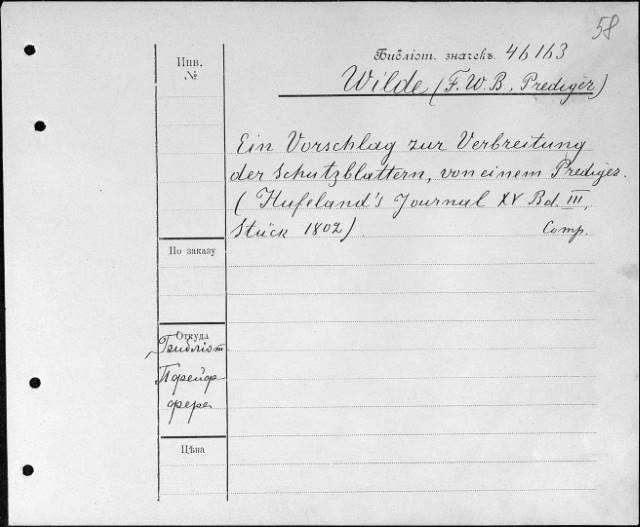 58
Библіот. значекъ 46163
Инв.
№
Wilde (F. W. B., Prediger)
Ein Vorschlag zur Verbreitung
der Schutzblattern, von einem Prediger.
(Hufeland's Journal XV Bd. III,
Stück 1802) Comp.
По заказу
Откуда
Библіот.
Цѣна